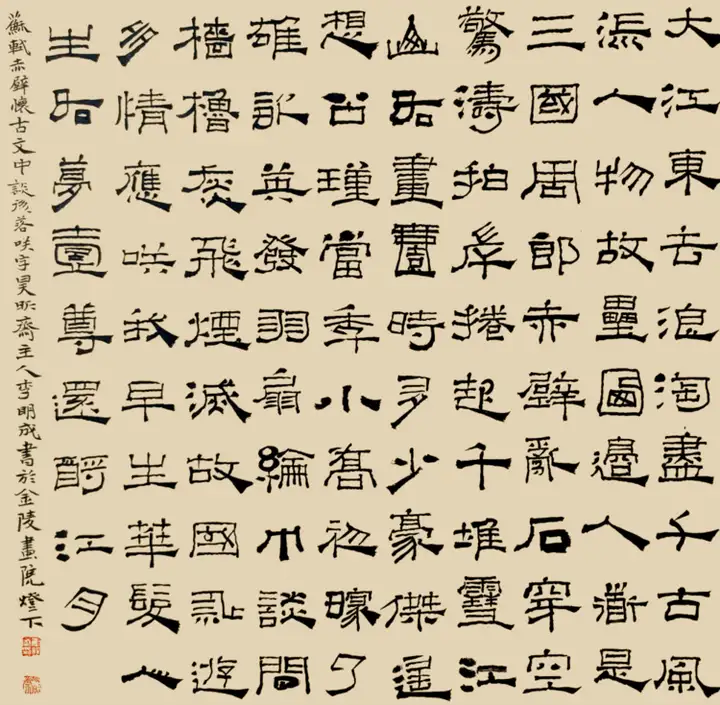 大江東去浪淘盡千古風
流人物故壘西邊人道是
三國周郎赤壁亂石穿空
驚濤拍岸捲起千堆雪江
山如畫壹時多少豪傑遙
想公瑾當年小喬初嫁了
雄姿英發羽扇綸巾談間
檣櫓灰飛煙滅故國神遊
多情應咲我早生華髮人
生如夢壹尊還酹江月
蘇軾赤壁懷古文中談後落咲字昊昕齋主人李明成書於金陵畫院燈下